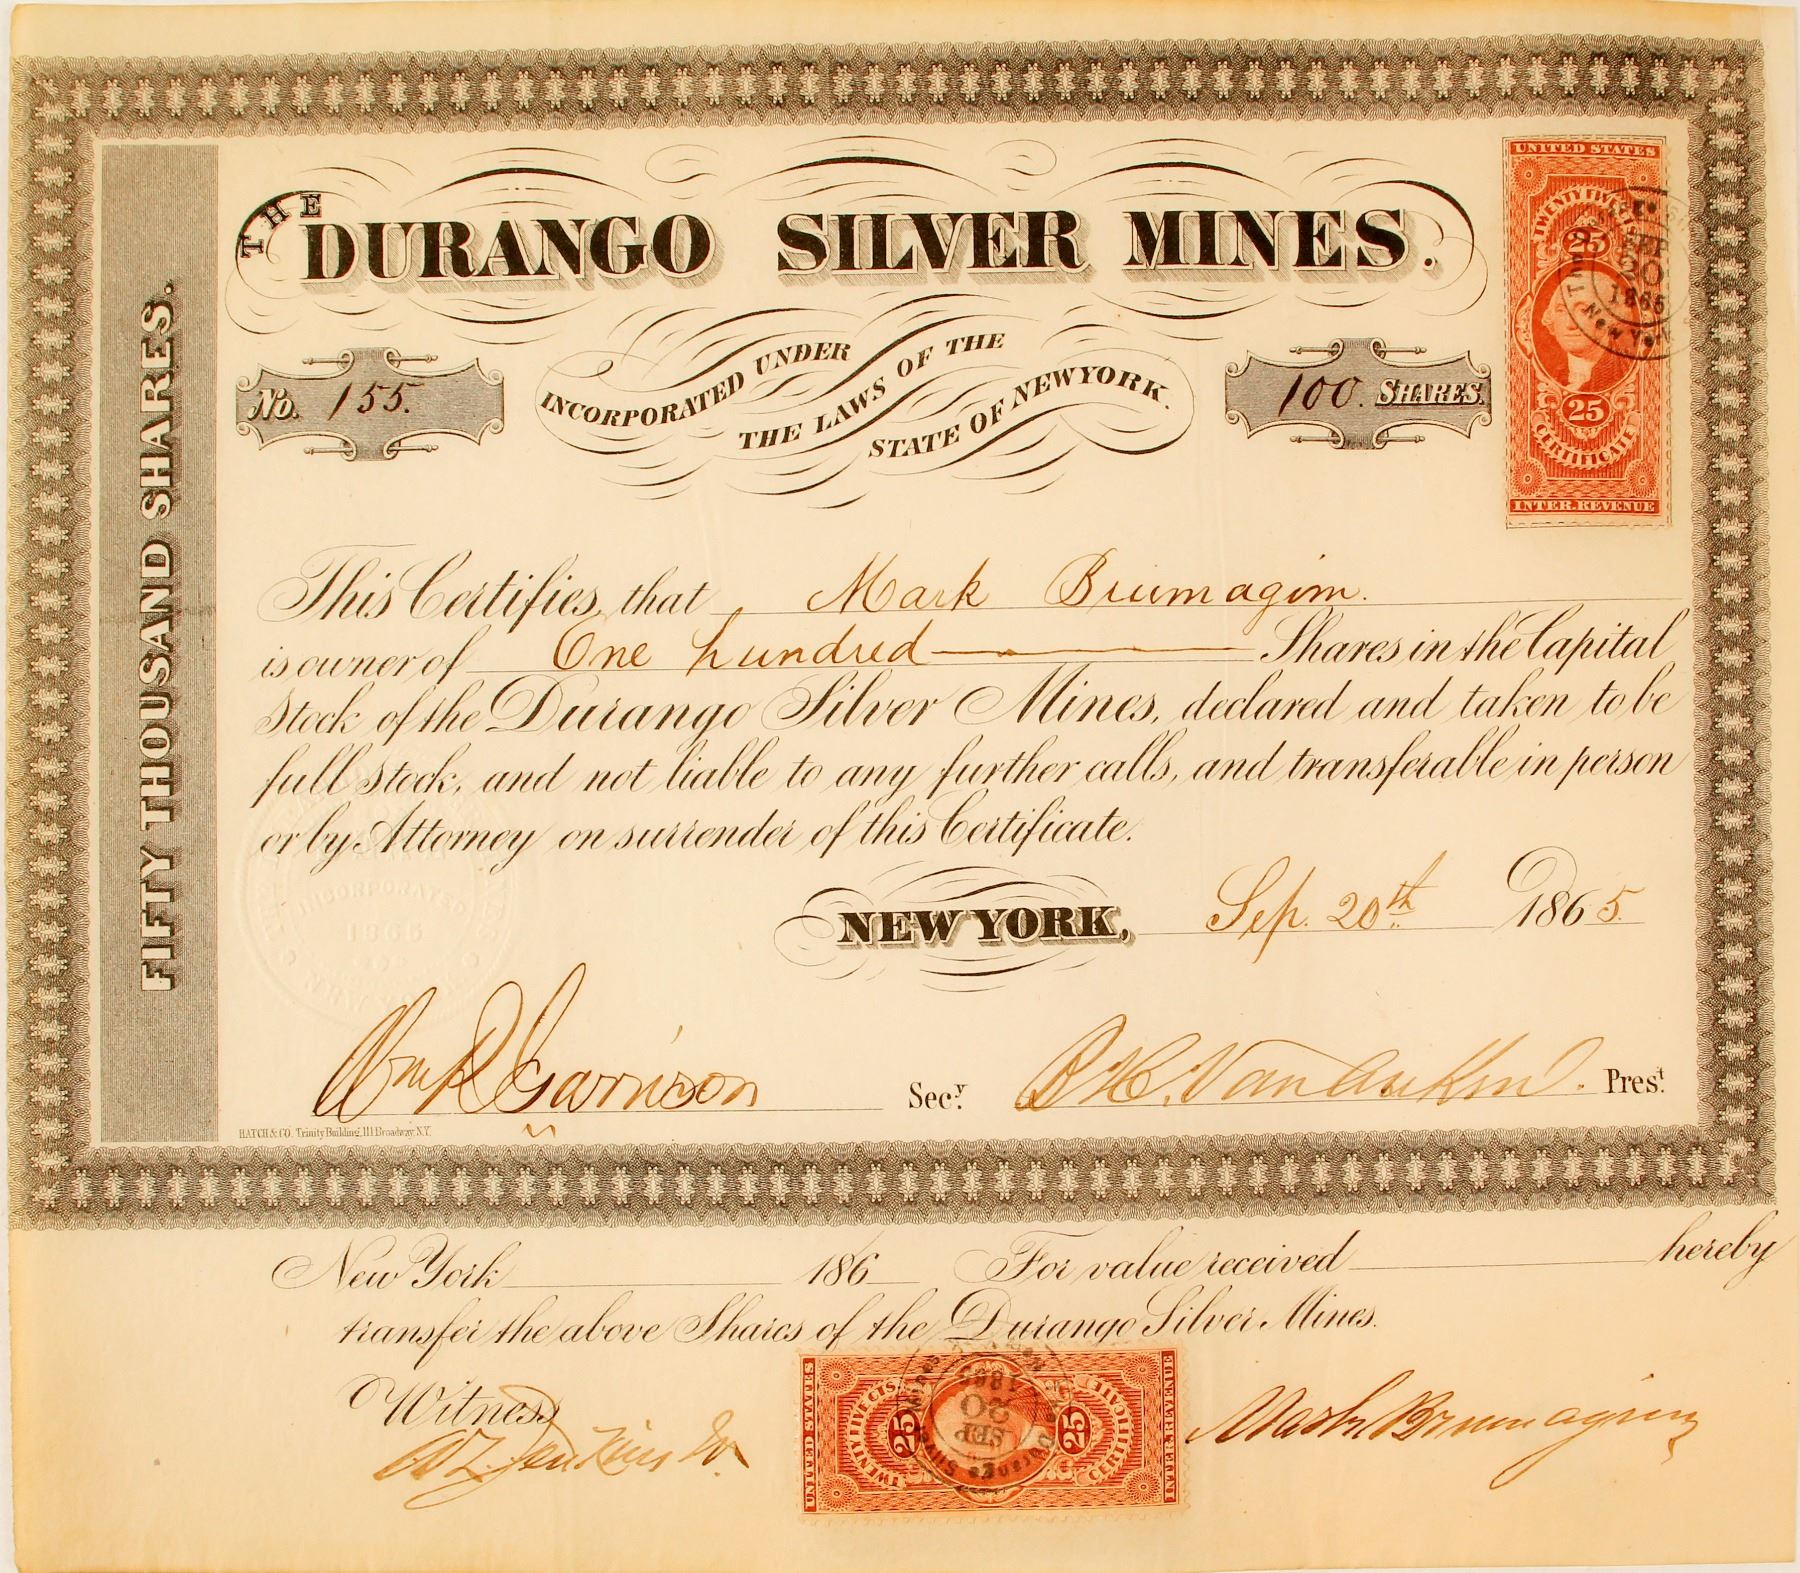 THE
DURANGO SILVER MINES.
No. 155.
INCORPORATED UNDER
THE LAWS OF THE
STATE OF NEW YORK.
100. SHARES.
UNITED STATES
TWENTY FIVE
25
SEP
20
1865
New York
25
CERTIFICATE
INTER. REVENUE
FIFTY THOUSAND SHARES.
This Certifies that Mark Brumagim.
is owner of One hundred Shares in the Capital
Stock of the Durango Silver Mines, declared and taken to be
full stock, and not liable to any further calls, and transferable in person
or by Attorney on surrender of this Certificate.
INCORPORATED
1865
NEW YORK, Sep. 20th 1865.
Wm R Garrison Secy. Prest.
HATCH & CO. Trinity Building, 111 Broadway, N.Y.
New York 186 For value received hereby
transfer the above Shares of the Durango Silver Mines.
Witness
Mark Brumagim
UNITED STATES
TWENTY FIVE CTS.
25
1865
SEP
20
Durango Silver Mines
25
CERTIFICATE
INTER. REVENUE